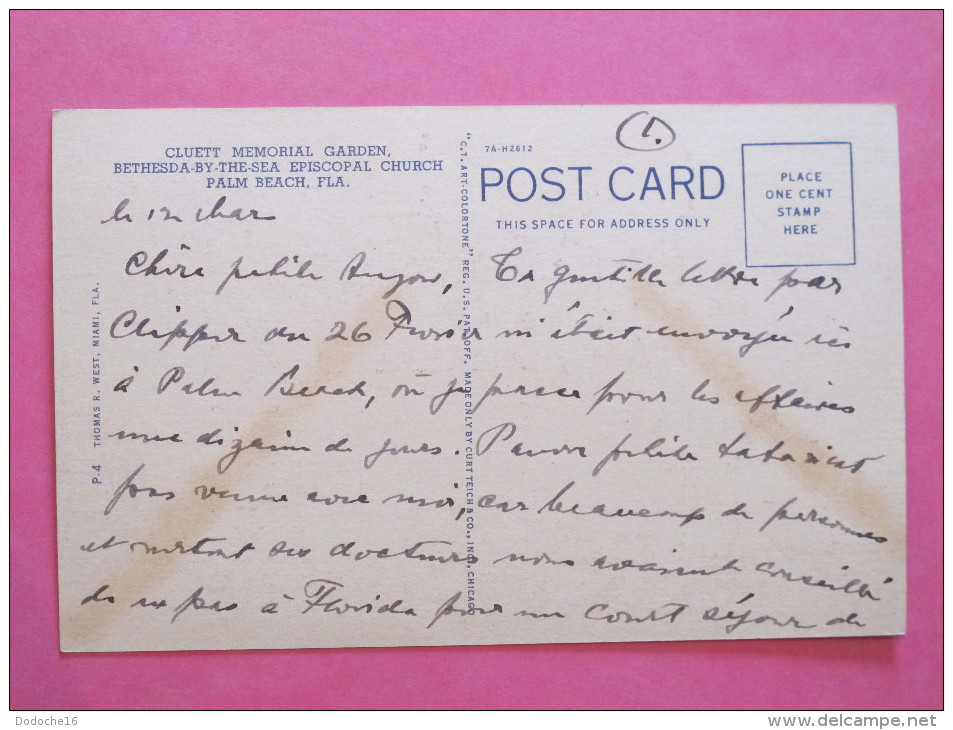 CLUETT MEMORIAL GARDEN,
BETHESDA-BY-THE-SEA EPISCOPAL CHURCH
PALM BEACH, FLA.
P-4 THOMAS R. WEST, MIAMI, FLA.
"C.T. ART-COLORTONE" REG. U.S. PAT. OFF. MADE ONLY BY CURT TEICH & CO., INC., CHICAGO
1.
7A-H2612
POST CARD
THIS SPACE FOR ADDRESS ONLY
PLACE
ONE CENT
STAMP
HERE
le 12 Mars
Chère petite Ta gentille lettre par
Clipper du 26 m'était envoyée ici
à Palm Beach, où je passe pour les affaires
une dizaine de jours. Pauvre petite n'est
pas venue avec moi, car beaucoup de personnes
et surtout ses docteurs nous avaient conseillé
de pas à Florida pour un court séjour de
Dodoche16
www.delcampe.net